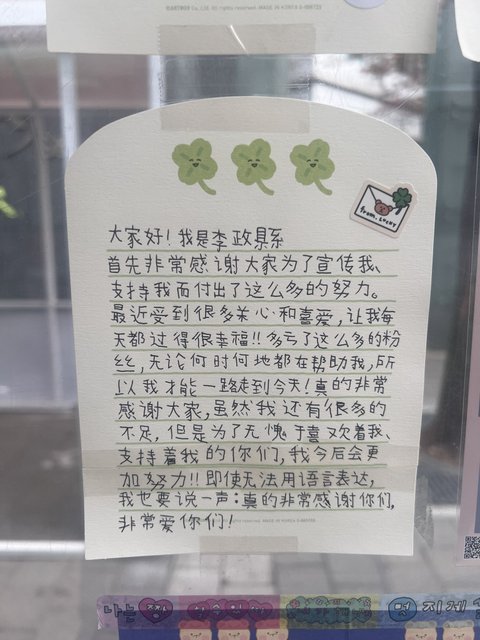 MADE IN KOREA
from. Lucky
大家好！我是李政具系
首先非常感谢大家为了宣传我、
支持我而付出了这么多的努力。
最近受到很多关心和喜爱，让我每
天都过得很幸福!! 多亏了这么多的粉
丝，无论何时何地都在帮助我，所
以我才能一路走到今天！真的非常
感谢大家，虽然我还有很多的
不足，但是为了无愧于喜欢着我、
支持着我的你们，我今后会更
加努力!! 即使无法用语言表达，
我也要说一声：真的非常感谢你们，
非常爱你们！
MADE IN KOREA
나는 짱
멋지게